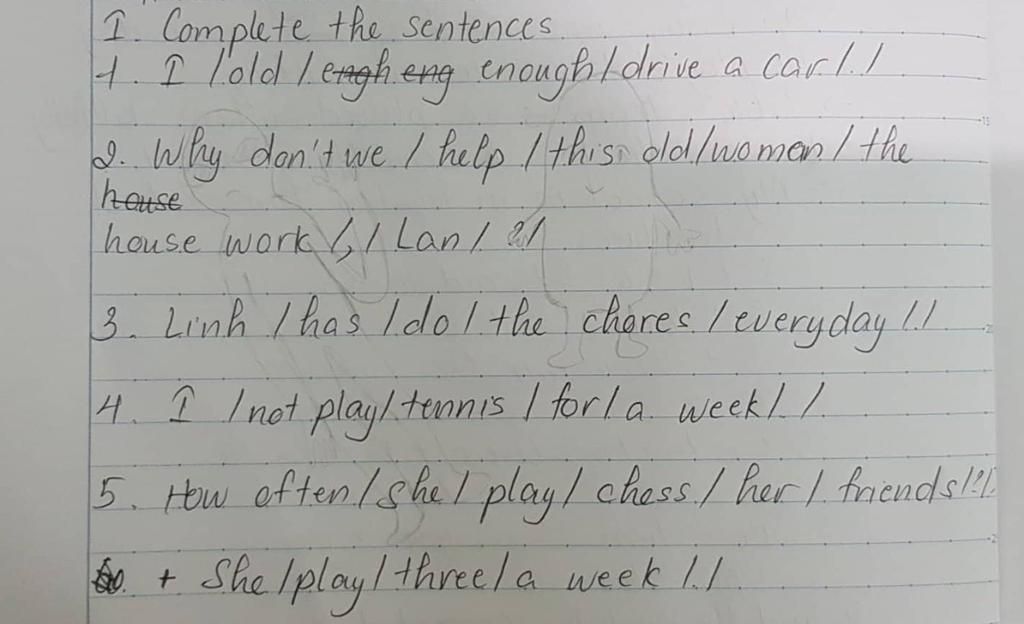 I. Complete the sentences
1. I / old / engh eng enough / drive a car / . /
2. Why don't we / help / this old / women / the
house
house work / , / Lan / ? /
3. Linh / has / do / the chores / everyday / . /
4. I / not play / tennis / for / a week / . /
5. How often / she / play / chess / her / friends / ? /
+ She / play / three / a week / . /